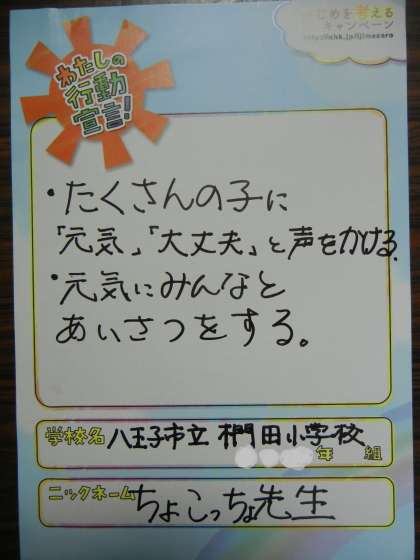 いじめを考える
キャンペーン
http://nhk.jp/ijimezero
わたしの
行動
宣言!
・たくさんの子に
「元気」「大丈夫」と声をかける。
・元気にみんなと
あいさつをする。
学校名 八王子市立 椚田小学校
年 組
ニックネーム ちょこっちょ先生